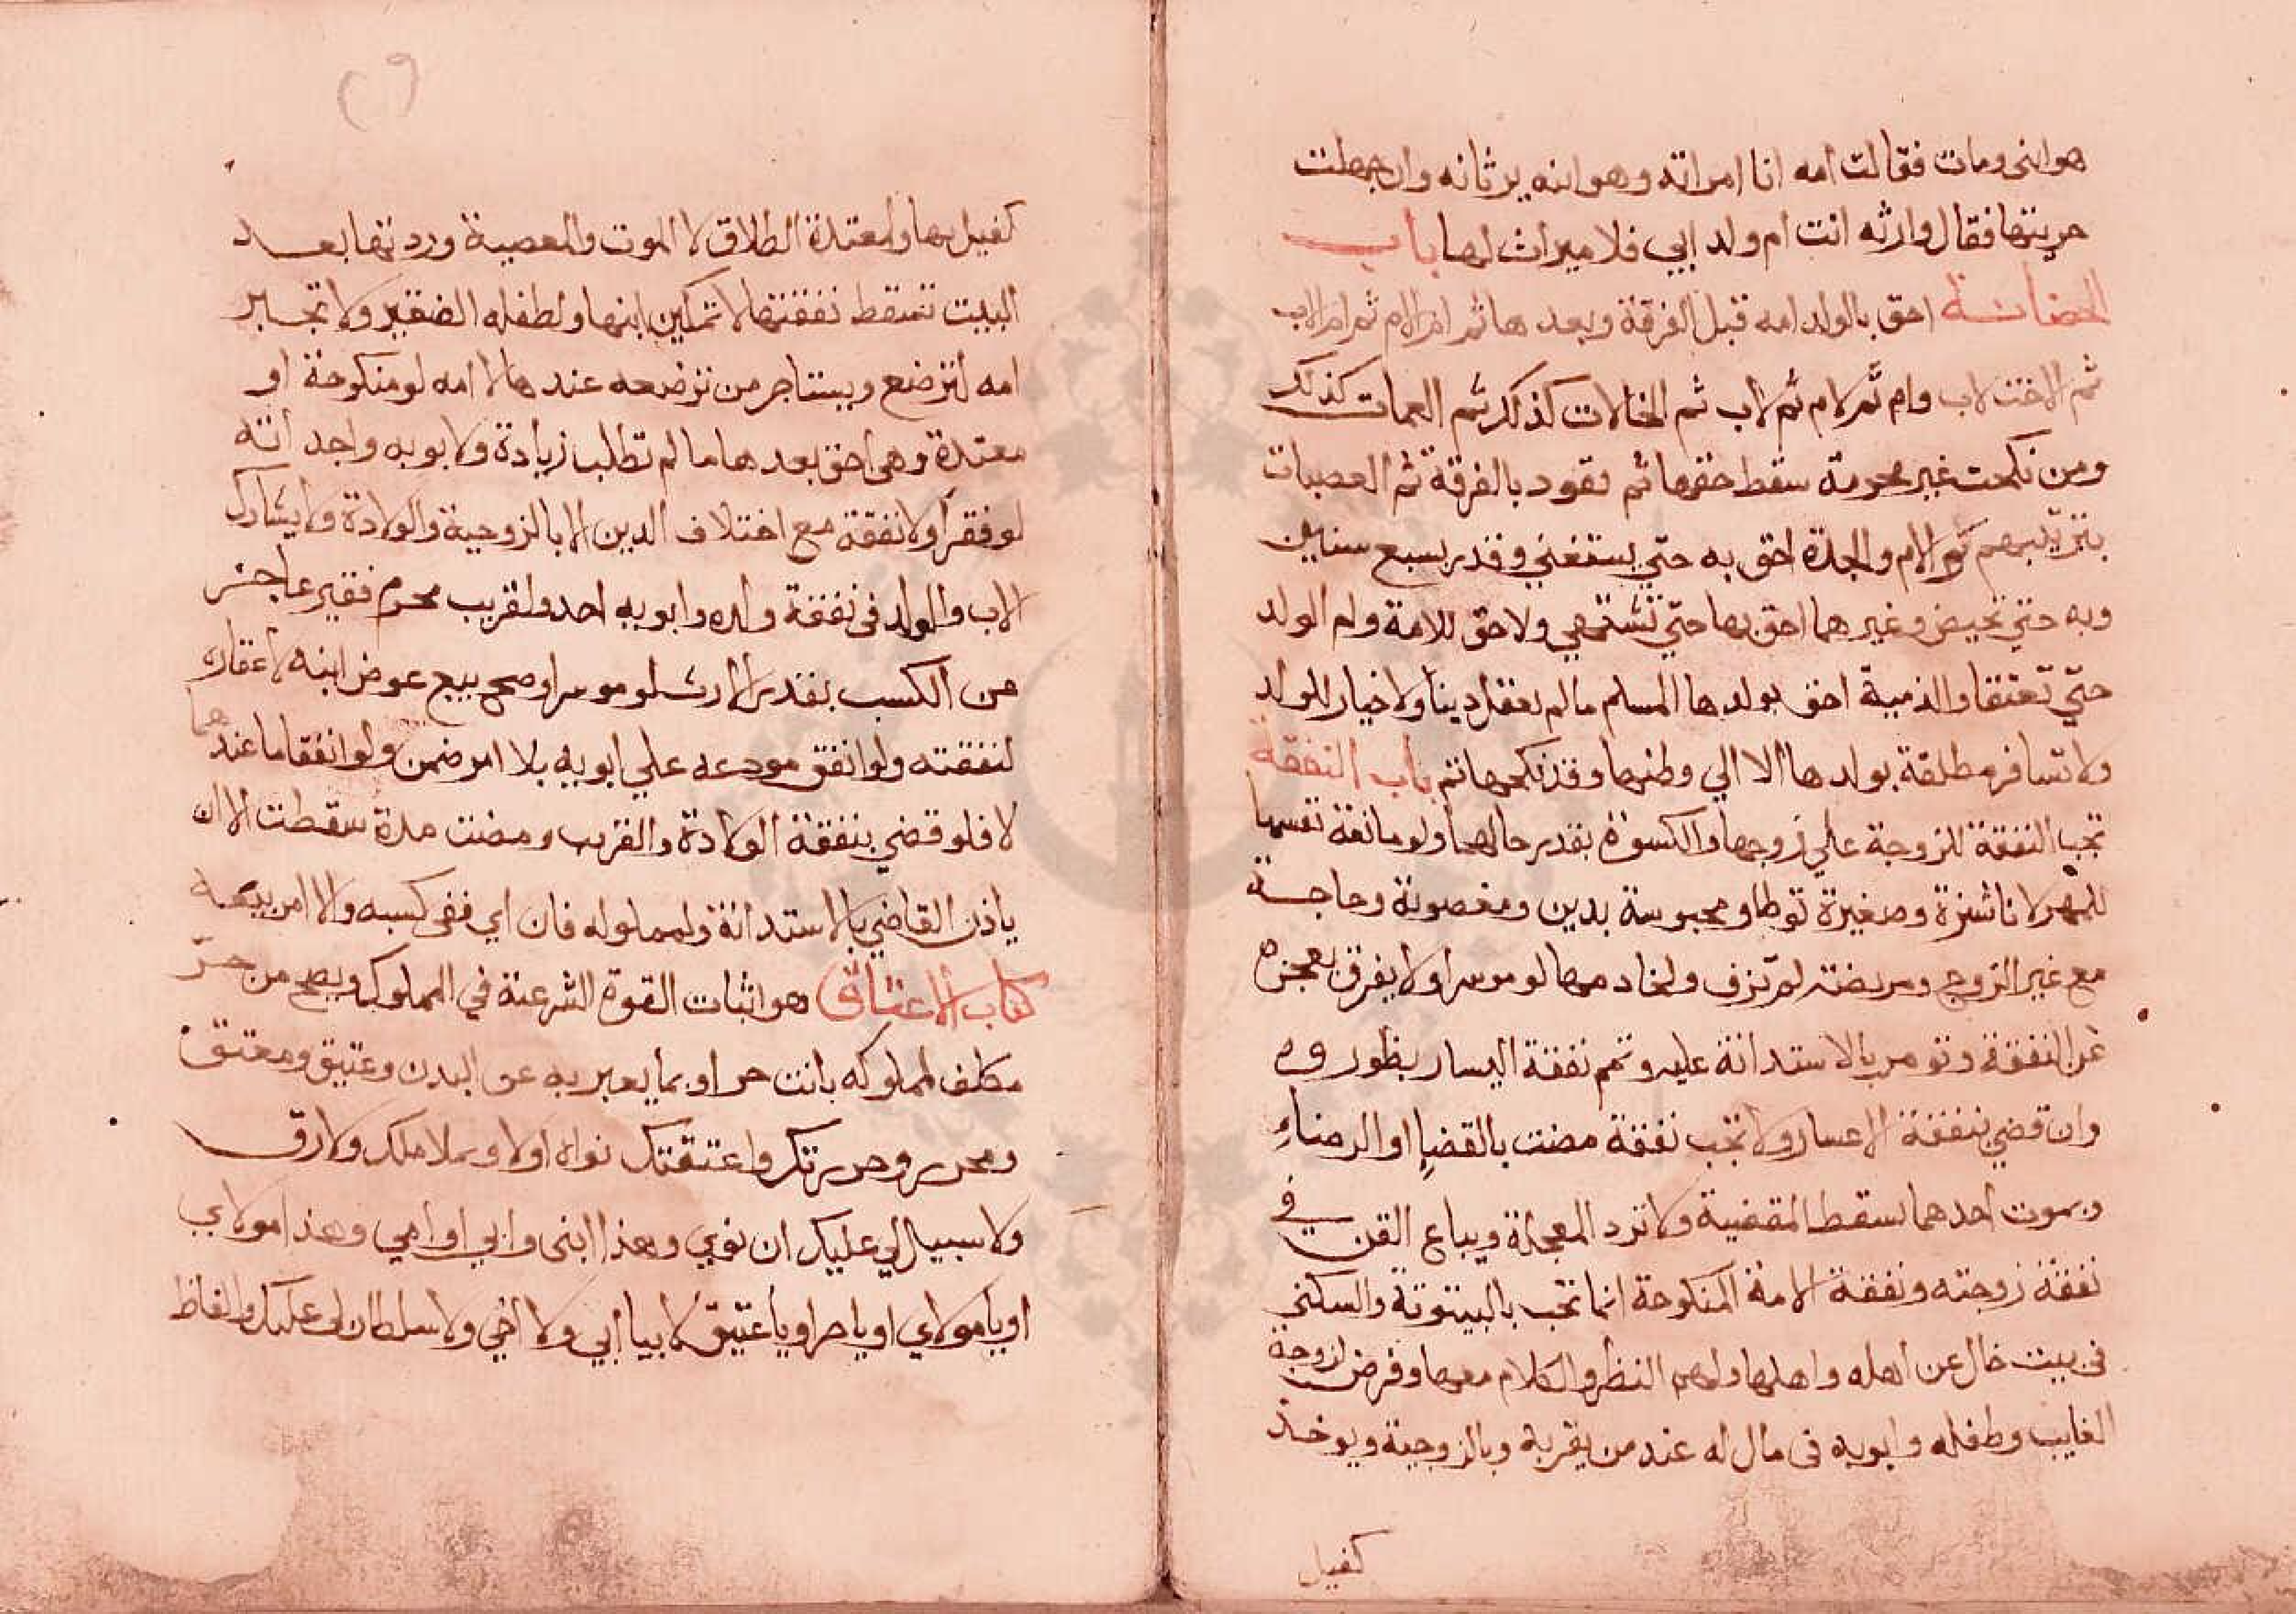 هو ابنى ومات فقالت امه انا امراته وهو ابنه يرثانه وان جهلت
حريتها فقال وارثه انت ام ولد ابي فلا ميراث لها باب
الحضانة احق بالولد امه قبل الفرقة وبعدها ثم ام الام ثم ام الاب
ثم الاخت لاب وام ثم لام ثم لاب ثم الخالات كذلك ثم العمات كذلك
ومن نكحت غير محرمه سقط حقها ثم تعود بالفرقة ثم العصبات
بترتيبهم والام والجدة احق به حتي يستغني وقدر بسبع سنين
وبه حتي تحيض وغيرهما احق بها حتي تشتهي ولا حق للامة وام الولد
حتي تعتقا والذمية احق بولدها المسلم مالم يعقل دينا ولا خيار للولد
ولا تسافر مطلقة بولدها الا الي وطنها وقد نكحها ثم باب النفقة
تجب النفقة للزوجة علي زوجها والكسوة بقدر حالهما ولو مانعة نفسها
للمهر لا ناشزة وصغيرة توطا ومحبوسة بدين ومغصوبة وحاجة
مع غير الزوج ومريضة لم تزف ولخادمها لو موسرا ولا يفرق بعجزه
عن النفقة وتومر بالاستدانة عليه وتمم نفقة اليسار بطوره
وان قضي بنفقة الاعسار ولا تجب نفقة مضت بالقضا او الرضاء
وبموت احدهما تسقط المقضية ولا ترد المعجلة ويباع القن في
نفقة زوجته ونفقة الامة المنكوحة انما تجب بالبيتوتة والسكنى
فى بيت خال عن اهله واهلها ولهم النظر والكلام معها وفرض لزوجة
الغايب وطفله وابويه فى مال له عند من يقر به وبالزوجية ويوخذ
كفيل
كفيل بها ولمعتدة الطلاق لا الموت والمعصية وردتها بعد
البيت تسقط نفقتها لا تمكين ابنها ولطفله الفقير ولا تجبر
امه لترضع ويستاجر من ترضعه عندها لا امه لو منكوحة او
معتدة وهي احق بعدها مالم تطلب زيادة ولابويه واجداده
لو فقرا ولا نفقة مع اختلاف الدين الا بالزوجية والولادة ولا يشارك
الاب والولد فى نفقة ولده وابويه احد ولقريب محرم فقير عاجز
من الكسب بقدر الارث لو موسرا وصح بيع عرض ابنه لا عقاره
لنفقته ولو انفق مودعه علي ابويه بلا امر ضمن ولو انفقا ما عندهما
لا فلو قضي بنفقة الولادة والقريب ومضت مدة سقطت الا ان
ياذن القاضي بالاستدانة ولمملوله فان اي ففى كسبه والا امر ببيعه
كتاب الاعتاق هو اثبات القوة الشرعية في المملوك ويصح من حر
مكلف لمملوكه بانت حر او بما يعبر به عن البدن وعتيق ومعتق
ومحرر وحررتك واعتقتك نواه اولا وبملا ملك ولا رق
ولا سبيل لي عليك ان نوي وهذا ابنى وابي او امي وهذا مولاي
او يا مولاي او يا حر او يا عتيق لا بيا ابي ولا اخي ولا سلطان لى عليك والفاظ